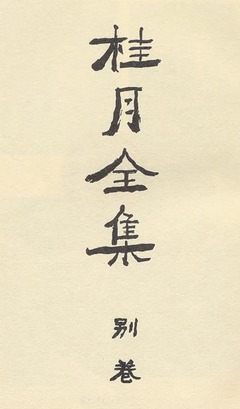 桂月全集
別巻